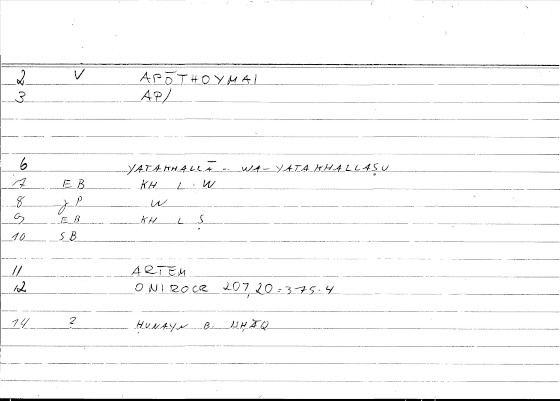 2 V APŌTHOYMAI
3 AP/
6 YATAKHALLĀ - WA-YATAKHALLAṢU
7 EB KH L W
8 JP W
9 EB KH L Ṣ
10 SB
11 ARTEM
12 ONIROCR 207,20=375.4
14 ? ḤUNAYN B.